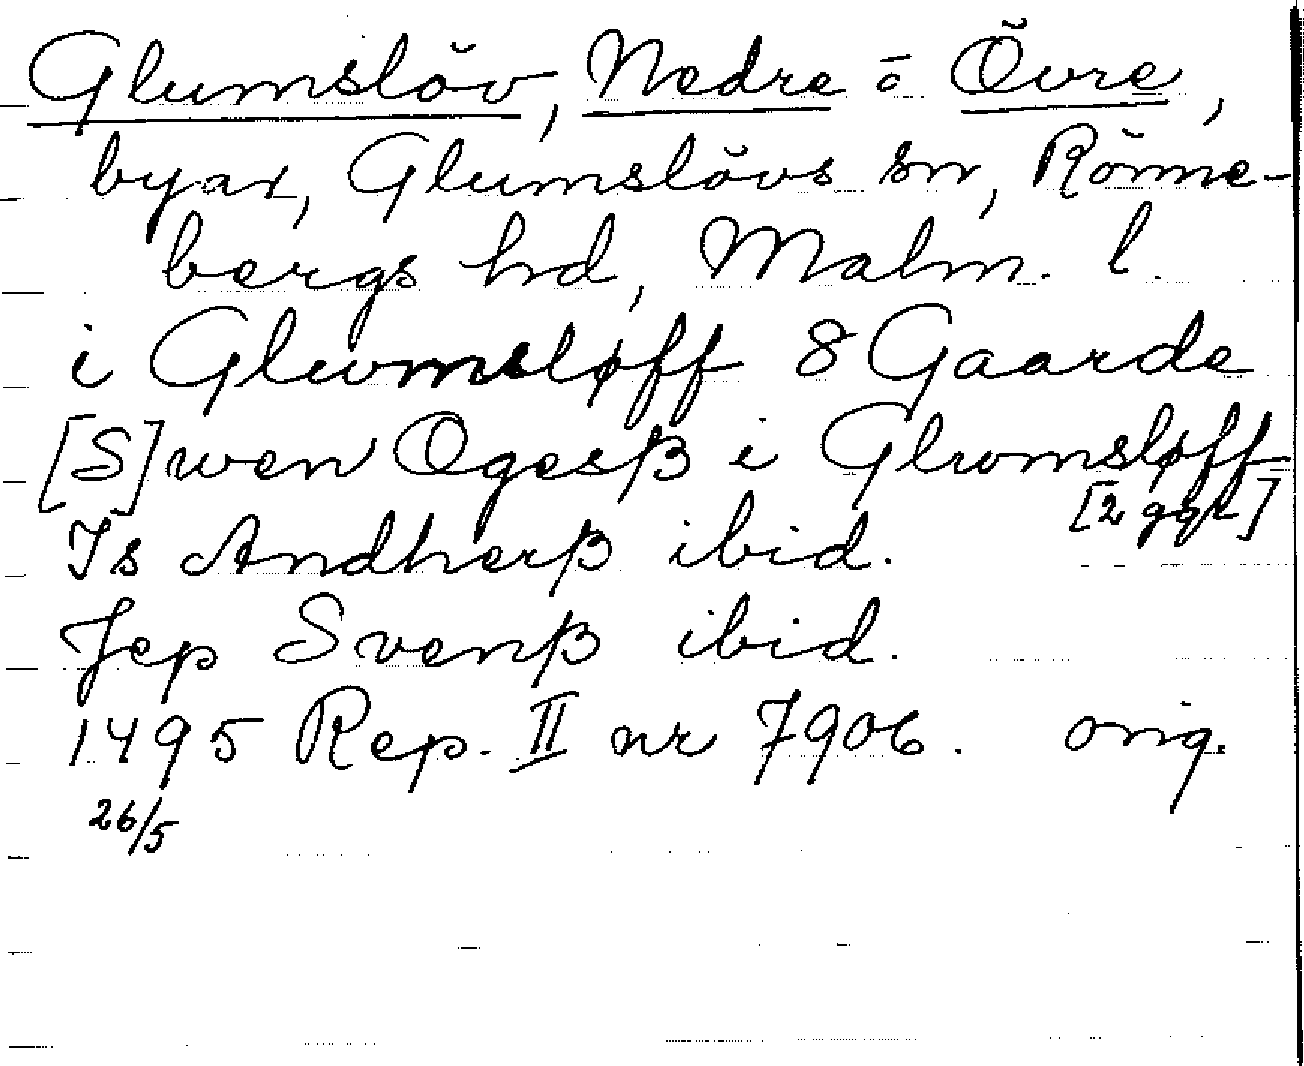 Glumslöv, Nedre o Övre,
byar, Glumslövs sn, Rönne-
bergs hd, Malm. l.
i Glwmsløff 8 Gaarde
[S]wen Ogesß i Glwmsløff
[2 ggr]
Is Andherß ibid.
Jep Svenß ibid.
1495 Rep. II nr 7906. orig.
26/5